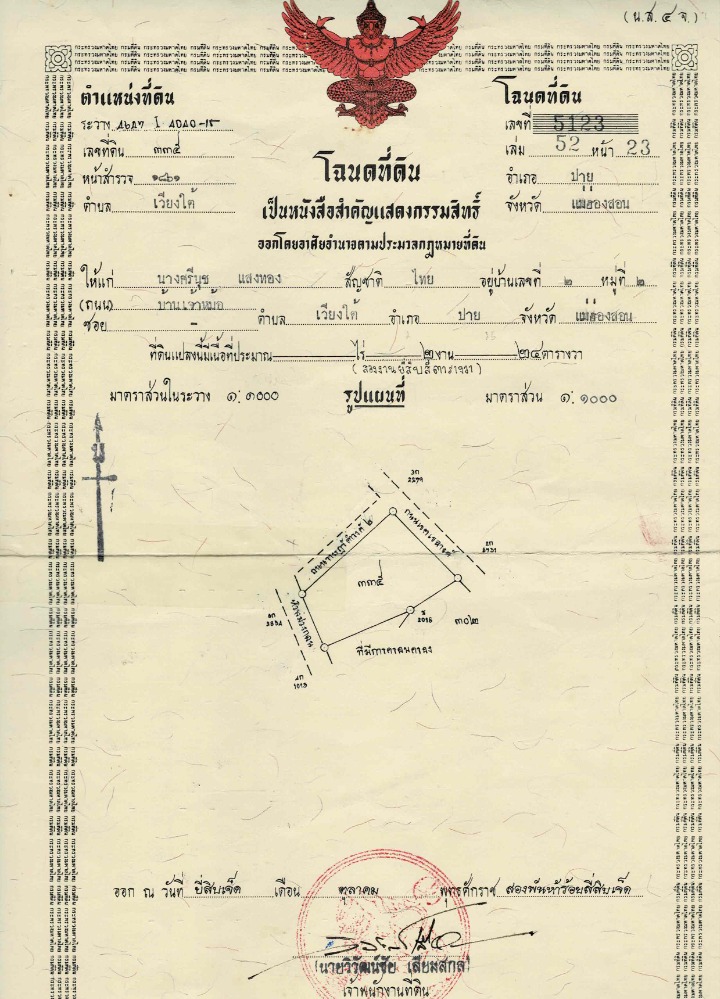 (น.ส.๔ จ.)
ตำแหน่งที่ดิน
โฉนดที่ดิน
ระวาง
เลขที่ 5123
เลขที่ดิน ๓๓๕
เล่ม 52 หน้า 23
โฉนดที่ดิน
หน้าสำรวจ ๑๘๖๑
อำเภอ ปาย
ตำบล เวียงใต้
เป็นหนังสือสำคัญแสดงกรรมสิทธิ์
จังหวัด แม่ฮ่องสอน
ออกโดยอาศัยอำนาจตามประมวลกฎหมายที่ดิน
ให้แก่ นางศรีนุช แสงทอง สัญชาติ ไทย อยู่บ้านเลขที่ ๒ หมู่ที่ ๒
(ถนน) บ้านเจ้าหม้อ
ซอย - ตำบล เวียงใต้ อำเภอ ปาย จังหวัด แม่ฮ่องสอน
ที่ดินแปลงนี้มีเนื้อที่ประมาณ ไร่ ๒ งาน ๒๔ ตารางวา
(สองงานยี่สิบสี่ตารางวา)
มาตราส่วนในระวาง ๑: ๑๐๐๐ รูปแผนที่ มาตราส่วน ๑: ๑๐๐๐
๓๓๕
๓๐๒
ออก ณ วันที่ ยี่สิบเจ็ด เดือน ตุลาคม พุทธศักราช สองพันห้าร้อยสี่สิบเจ็ด
(นายวิวัฒน์ชัย เสียมสกล)
เจ้าพนักงานที่ดิน